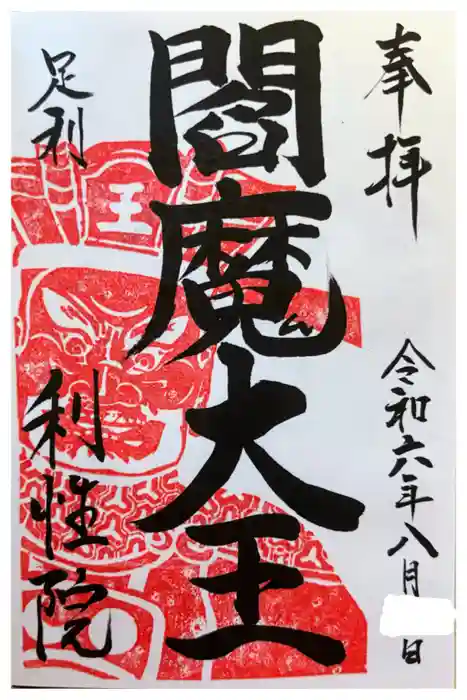 奉拝
令和六年八月 日
閻魔大王
王
足利
利性院